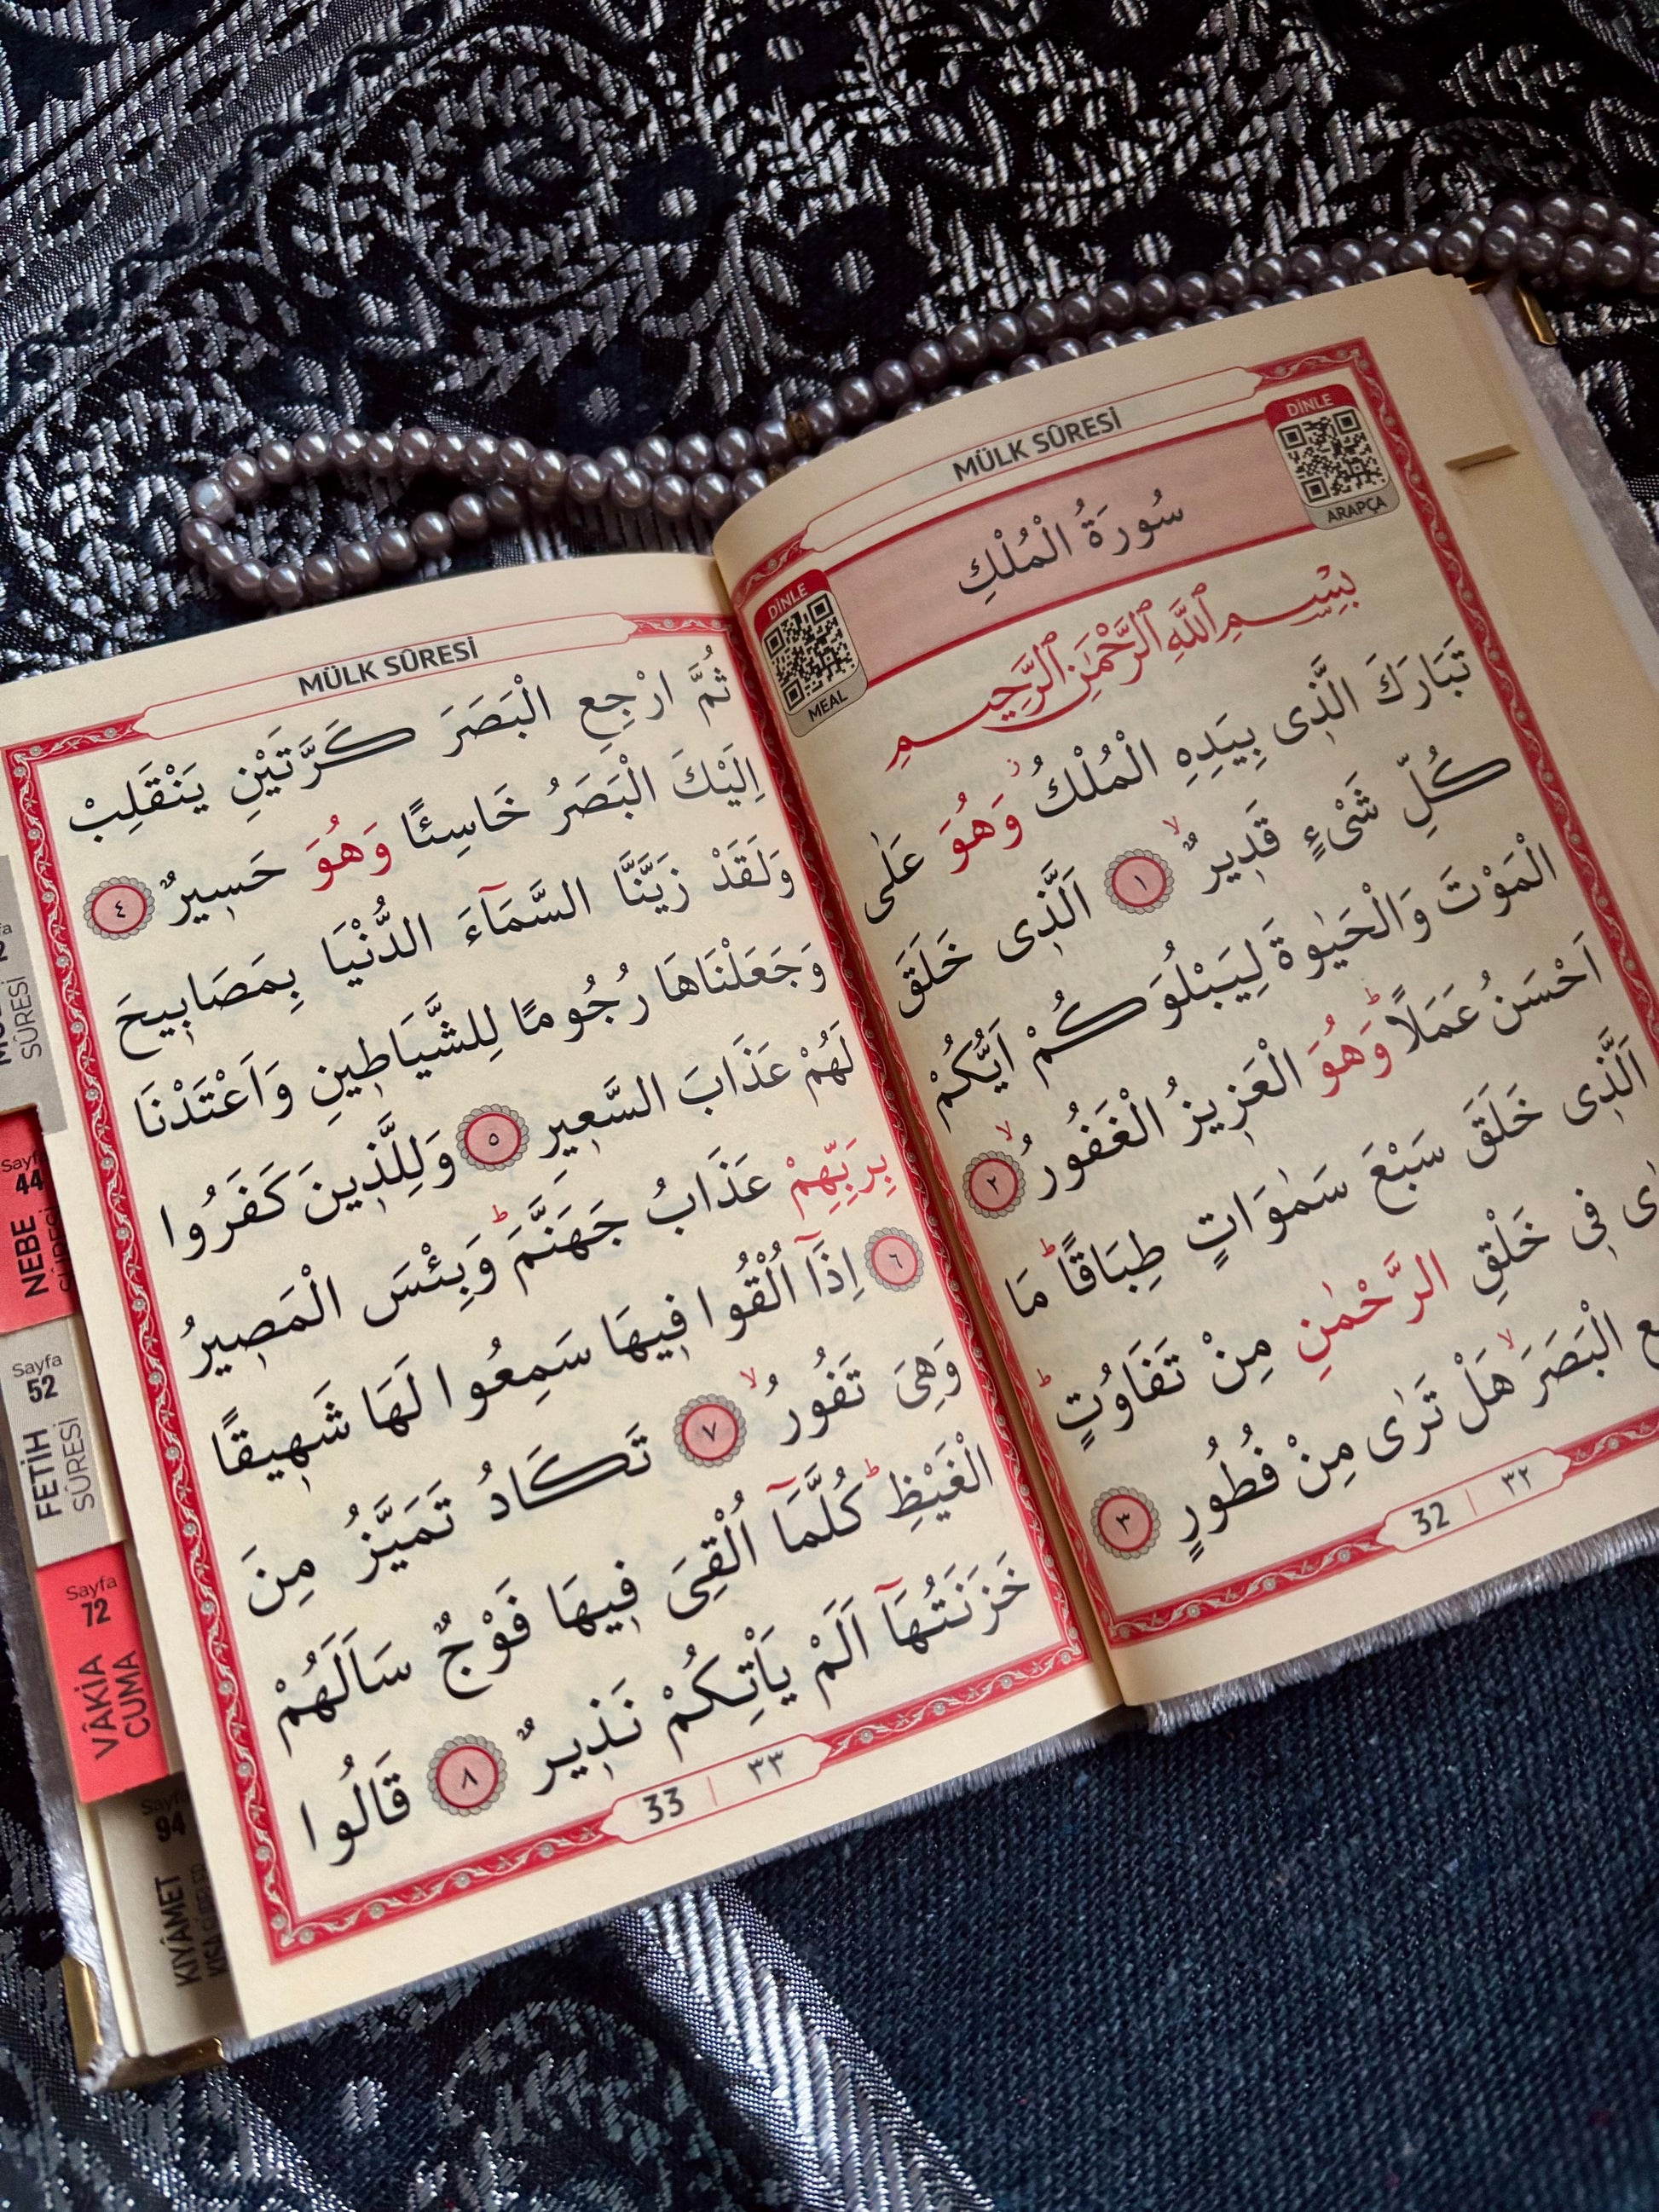 MÜLK SÛRESİ
DİNLE
ARAPÇA
سُورَةُ الْمُلْكِ
DİNLE
MEAL
بِسْمِ ٱللَّهِ ٱلرَّحْمَٰنِ ٱلرَّحِيمِ
تَبَارَكَ الَّذٖى بِيَدِهِ الْمُلْكُؗ وَهُوَ عَلٰى
كُلِّ شَیْءٍ قَدٖيرٌۙ ﴿١﴾ اَلَّذٖى خَلَقَ
الْمَوْتَ وَالْحَيٰوةَ لِيَبْلُوَكُمْ اَيُّكُمْ
اَحْسَنُ عَمَلًاؕ وَهُوَ الْعَزٖيزُ الْغَفُورُۙ ﴿٢﴾
اَلَّذٖى خَلَقَ سَبْعَ سَمٰوَاتٍ طِبَاقًاؕ مَا
فٖى خَلْقِ الرَّحْمٰنِ مِنْ تَفَاوُتٍؕ
الْبَصَرَۙ هَلْ تَرٰى مِنْ فُطُورٍ ﴿٣﴾
32 | ٣٢
MÜLK SÛRESİ
ثُمَّ ارْجِعِ الْبَصَرَ كَرَّتَيْنِ يَنْقَلِبْ
اِلَيْكَ الْبَصَرُ خَاسِئًا وَهُوَ حَسٖيرٌ ﴿٤﴾
وَلَقَدْ زَيَّنَّا السَّمَٓاءَ الدُّنْيَا بِمَصَابٖيحَ
وَجَعَلْنَاهَا رُجُومًا لِلشَّيَاطٖينِ وَاَعْتَدْنَا
لَهُمْ عَذَابَ السَّعٖيرِ ﴿٥﴾ وَلِلَّذٖينَ كَفَرُوا
بِرَبِّهِمْ عَذَابُ جَهَنَّمَؕ وَبِئْسَ الْمَصٖيرُ
﴿٦﴾ اِذَٓا اُلْقُوا فٖيهَا سَمِعُوا لَهَا شَهٖيقًا
وَهِیَ تَفُورُۙ ﴿٧﴾ تَكَادُ تَمَيَّزُ مِنَ
الْغَيْظِؕ كُلَّمَٓا اُلْقِیَ فٖيهَا فَوْجٌ سَاَلَهُمْ
خَزَنَتُهَٓا اَلَمْ يَاْتِكُمْ نَذٖيرٌ ﴿٨﴾ قَالُوا
33 | ٣٣
SÛRESİ
Sayfa
44
NEBE
SÛRESİ
Sayfa
52
FETİH
SÛRESİ
Sayfa
72
VÂKİA
CUMA
Sayfa
94
KIYÂMET
KISA SÛRELER